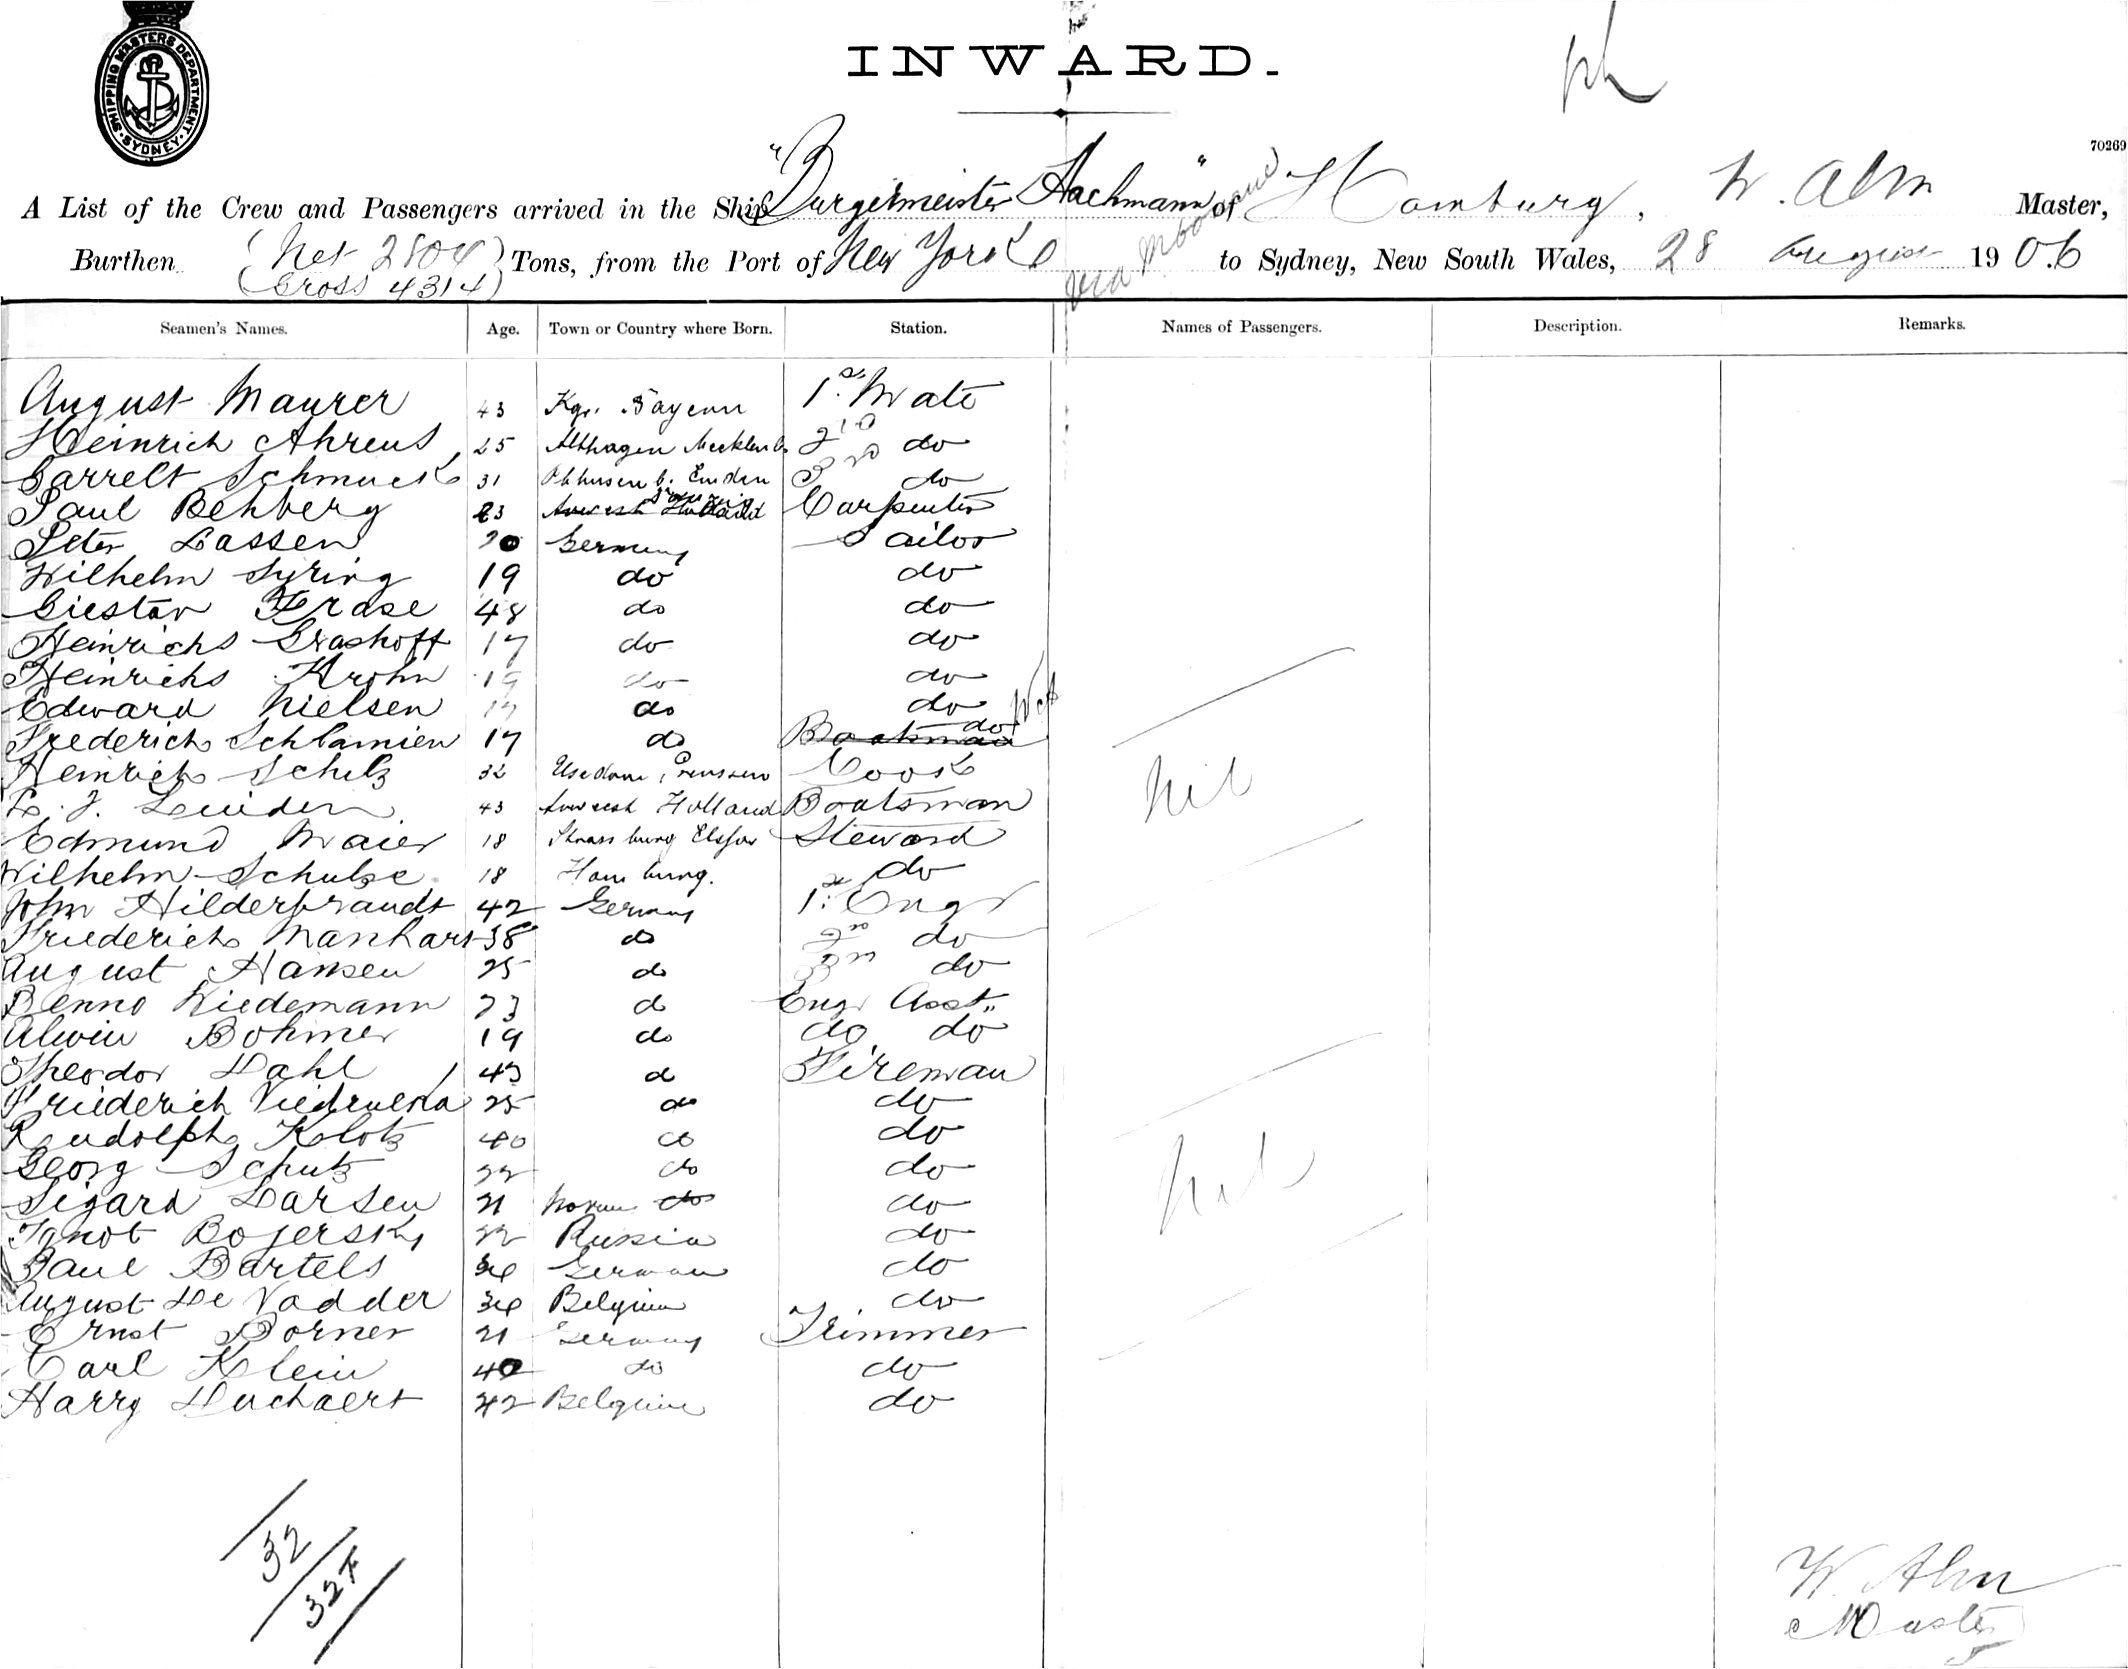 SHIPPING MASTERS DEPARTMENT
SYDNEY
INWARD.
70269
A List of the Crew and Passengers arrived in the Ship "Burgermeister Hachmann" of Hamburg, W. Alm Master,
Burthen (Net 2804 Gross 4314) Tons, from the Port of New York via to Sydney, New South Wales, 28 August 1906
Seamen's Names. Age. Town or Country where Born. Station. Names of Passengers. Description. Remarks.
August Maurer 43 Kgr. Bayern 1st Mate
Heinrich Ahrens 25 Althagen Mecklenb. 2nd do
Garrelt Schmuck 31 b. Emden 3rd do
Paul Behberg 23 Carpenter
Peter Lassen 20 Germany Sailor
Wilhelm Syring 19 do do
Gustav Krase 48 do do
Heinrichs Grashoff 17 do do
Heinrichs Krohn 19 do do
Edward Nielsen 17 do do
Frederich Schlamien 17 do Boatman do
Heinrich Schulz 32 Usedom, Preussen Cook
43 Holland Boatsman
Nil
Edmund Maier 18 Strassburg Elsass Steward
Wilhelm Schulze 18 Hamburg. do
John Hilderbrandt 42 Germany 1st Engr
Friederich Manhart 38 do 2nd do
August Hansen 25 do 3rd do
Benno Wiedemann 23 do Engr Asst.
Alwin Bohmer 19 do do do
Theodor Dahl 43 do Fireman
Friederich 25 do do
Rudolph Klotz 40 do do
Georg Schutz 22 do do
Sigard Larsen 21 Norway do do
Nil
Bojersky 22 Russia do
Paul Bartels 34 German do
August De Vadder 34 Belgium do
Ernst Borner 21 Germany Trimmer
Carl Klein 40 do do
Harry Duchaert 42 Belgium do
32
32
W. Alm
Master